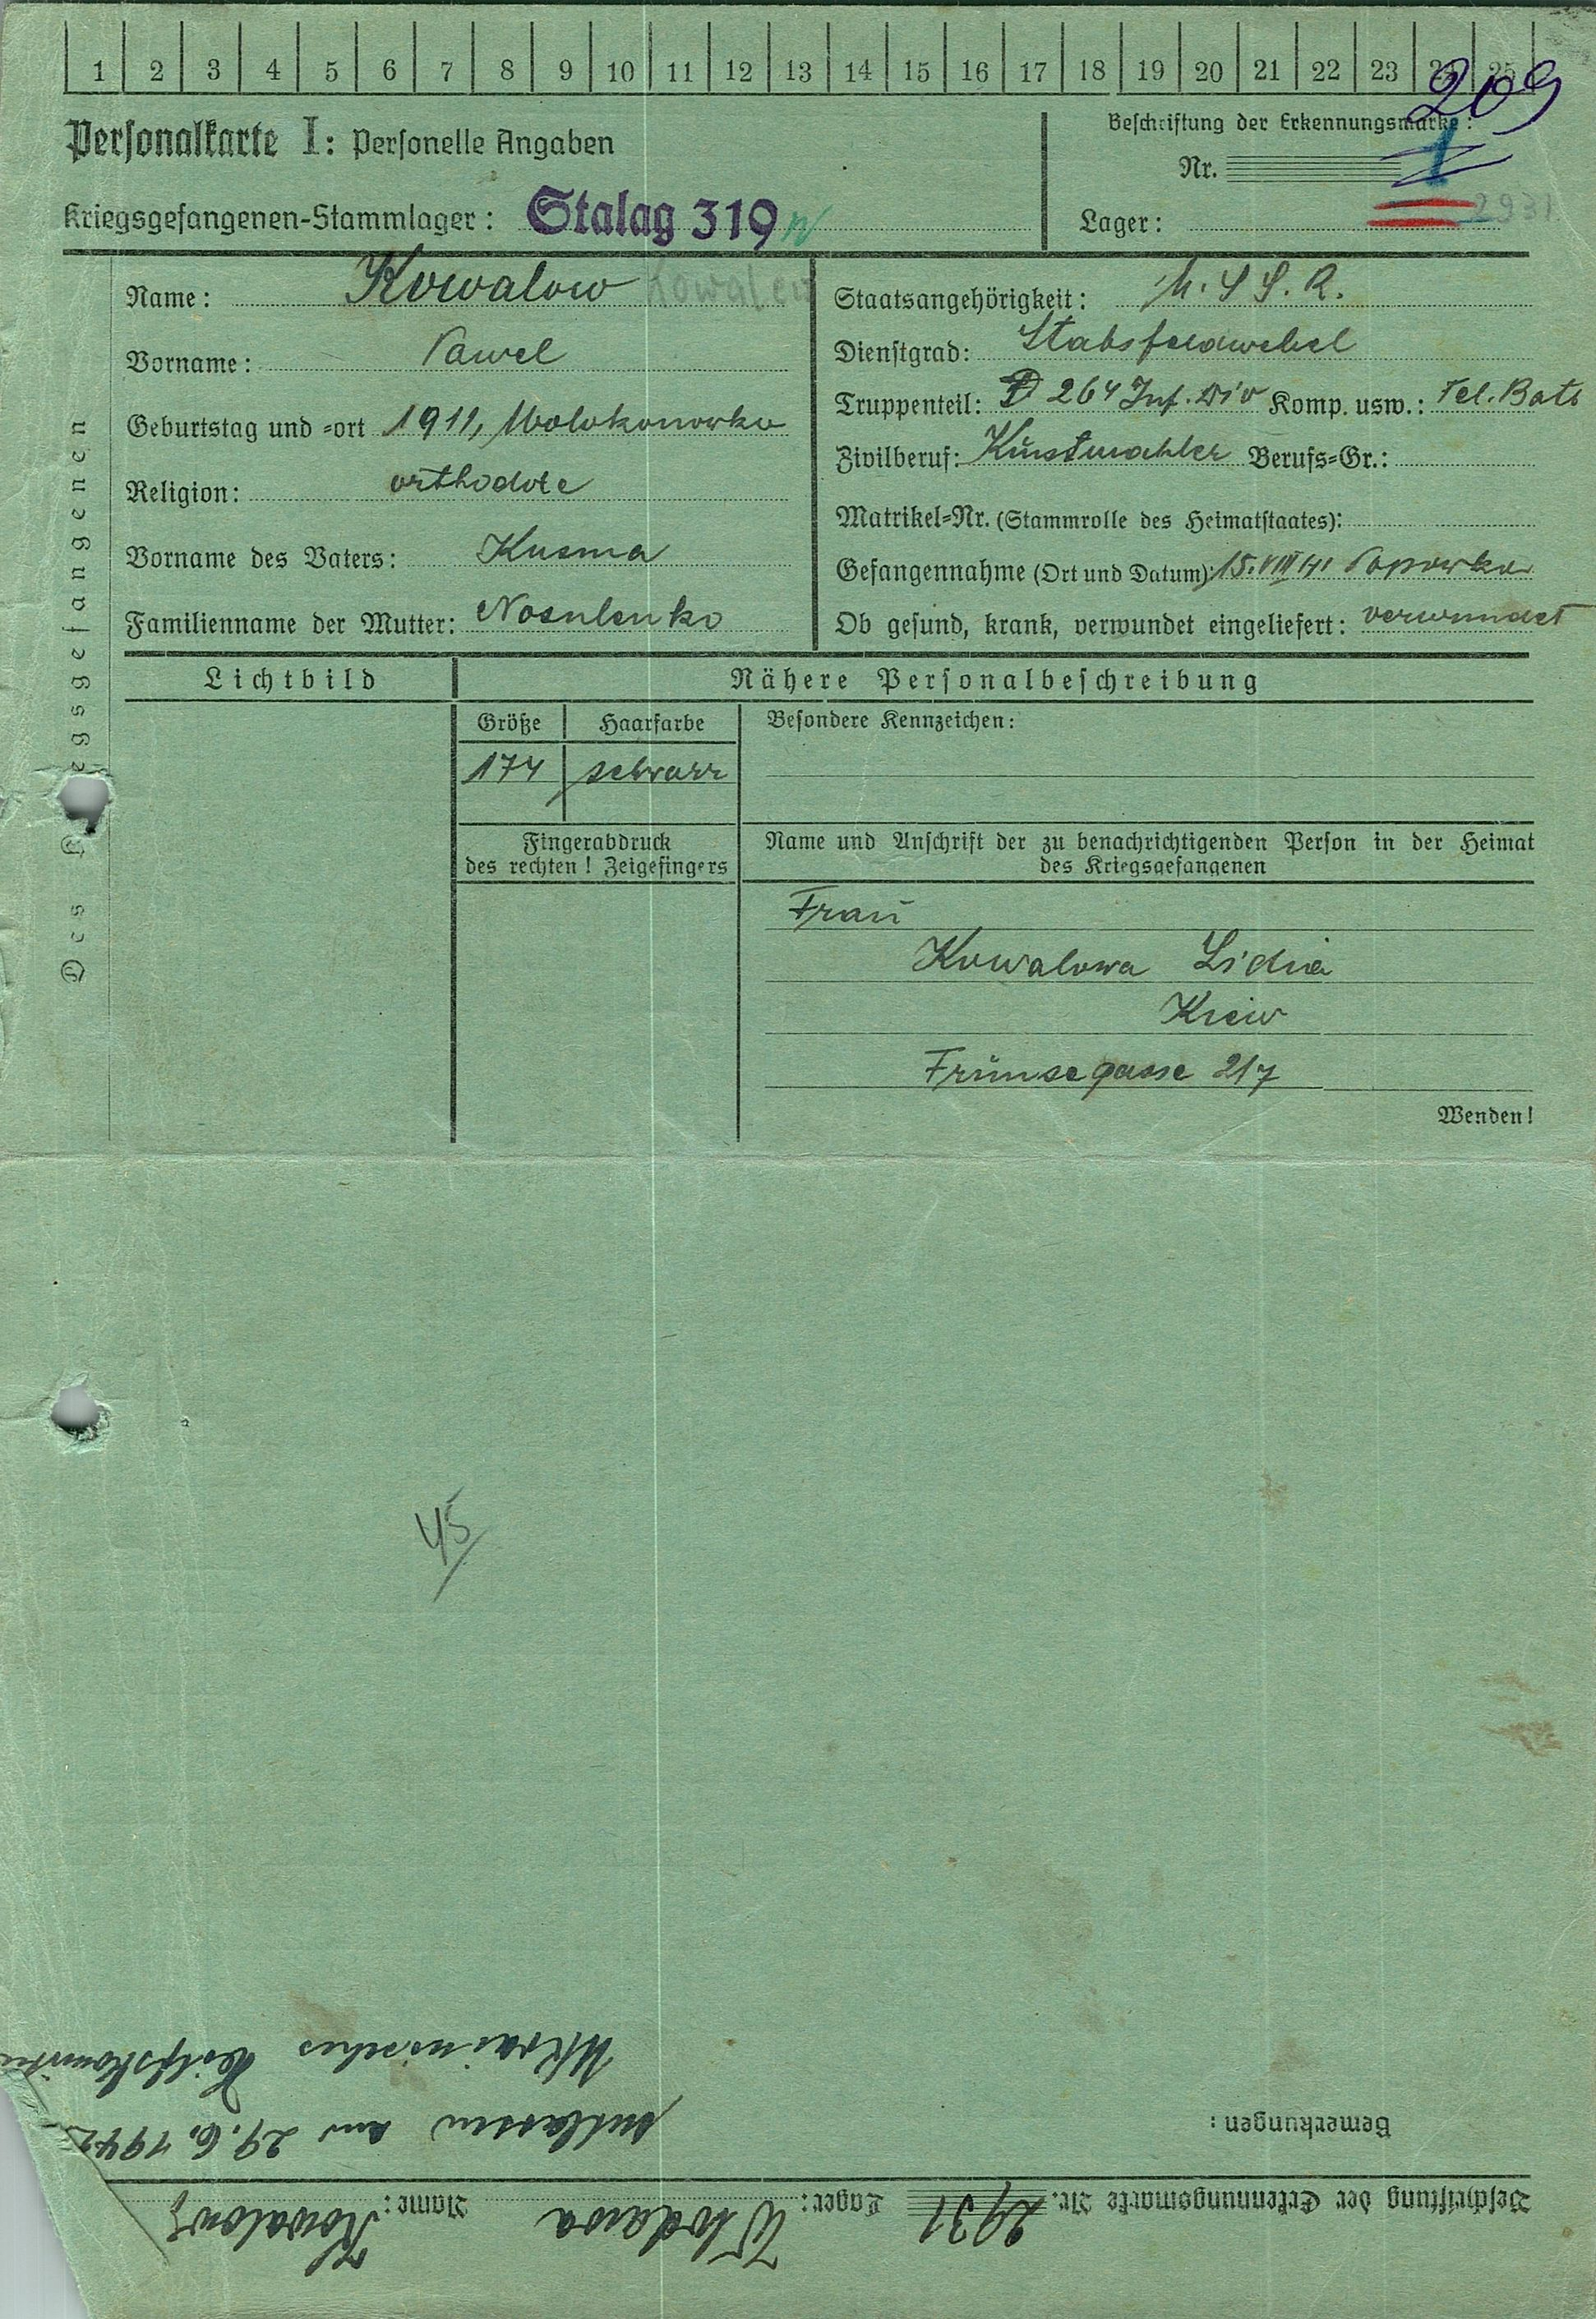 1 2 3 4 5 6 7 8 9 10 11 12 13 14 15 16 17 18 19 20 21 22 23 24 25
209
Personalkarte I: Personelle Angaben
Beschriftung der Erkennungsmarke:
Nr.
Kriegsgefangenen-Stammlager: Stalag 319
Lager: 2931
Des Kriegsgefangenen
Name: Kowalow Kowalew
Vorname: Pawel
Geburtstag und -ort 1911, Wolokonowka
Religion: orthodoxe
Vorname des Vaters: Kusma
Familienname der Mutter: Nosulenko
Staatsangehörigkeit: U.S.S.R.
Dienstgrad: Stabsfeldwebel
Truppenteil: 264 Inf. Div Komp. usw.: Tel. Batl
Zivilberuf: Kunstmahler Berufs-Gr.:
Matrikel-Nr. (Stammrolle des Heimatstaates):
Gefangennahme (Ort und Datum): 15.VIII 41 Popowka
Ob gesund, krank, verwundet eingeliefert: verwundet
Lichtbild
Nähere Personalbeschreibung
Größe Haarfarbe
174 schwarz
Besondere Kennzeichen:
Fingerabdruck
des rechten! Zeigefingers
Name und Anschrift der zu benachrichtigenden Person in der Heimat
des Kriegsgefangenen
Frau
Kowalowa Lidia
Kiew
Frunsegasse 217
Wenden!
45
Beschriftung der Erkennungsmarke Nr. 2931 Lager: Wlodawa Name: Kowalow
Bemerkungen:
entlassen am 29.6.1942
Ukrainisches Hilfskomitee